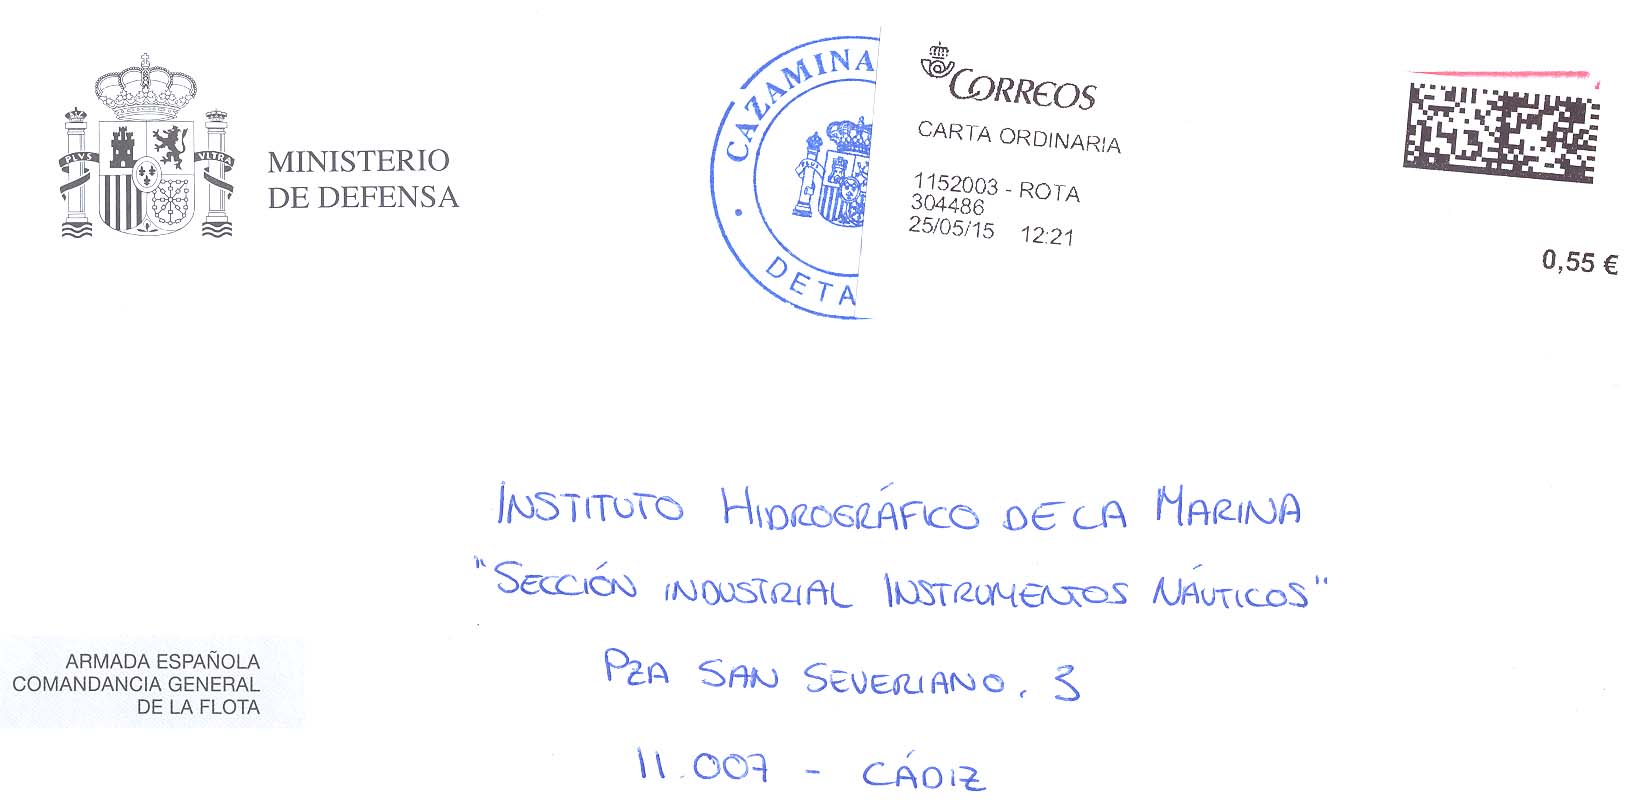 PLVS VLTRA
MINISTERIO
DE DEFENSA
CAZAMINA
DETA
CORREOS
CARTA ORDINARIA
1152003 - ROTA
304486
25/05/15 12:21
0,55 €
INSTITUTO HIDROGRÁFICO DE LA MARINA
"SECCIÓN INDUSTRIAL INSTRUMENTOS NÁUTICOS"
PZA SAN SEVERIANO. 3
11.007 - CÁDIZ
ARMADA ESPAÑOLA
COMANDANCIA GENERAL
DE LA FLOTA